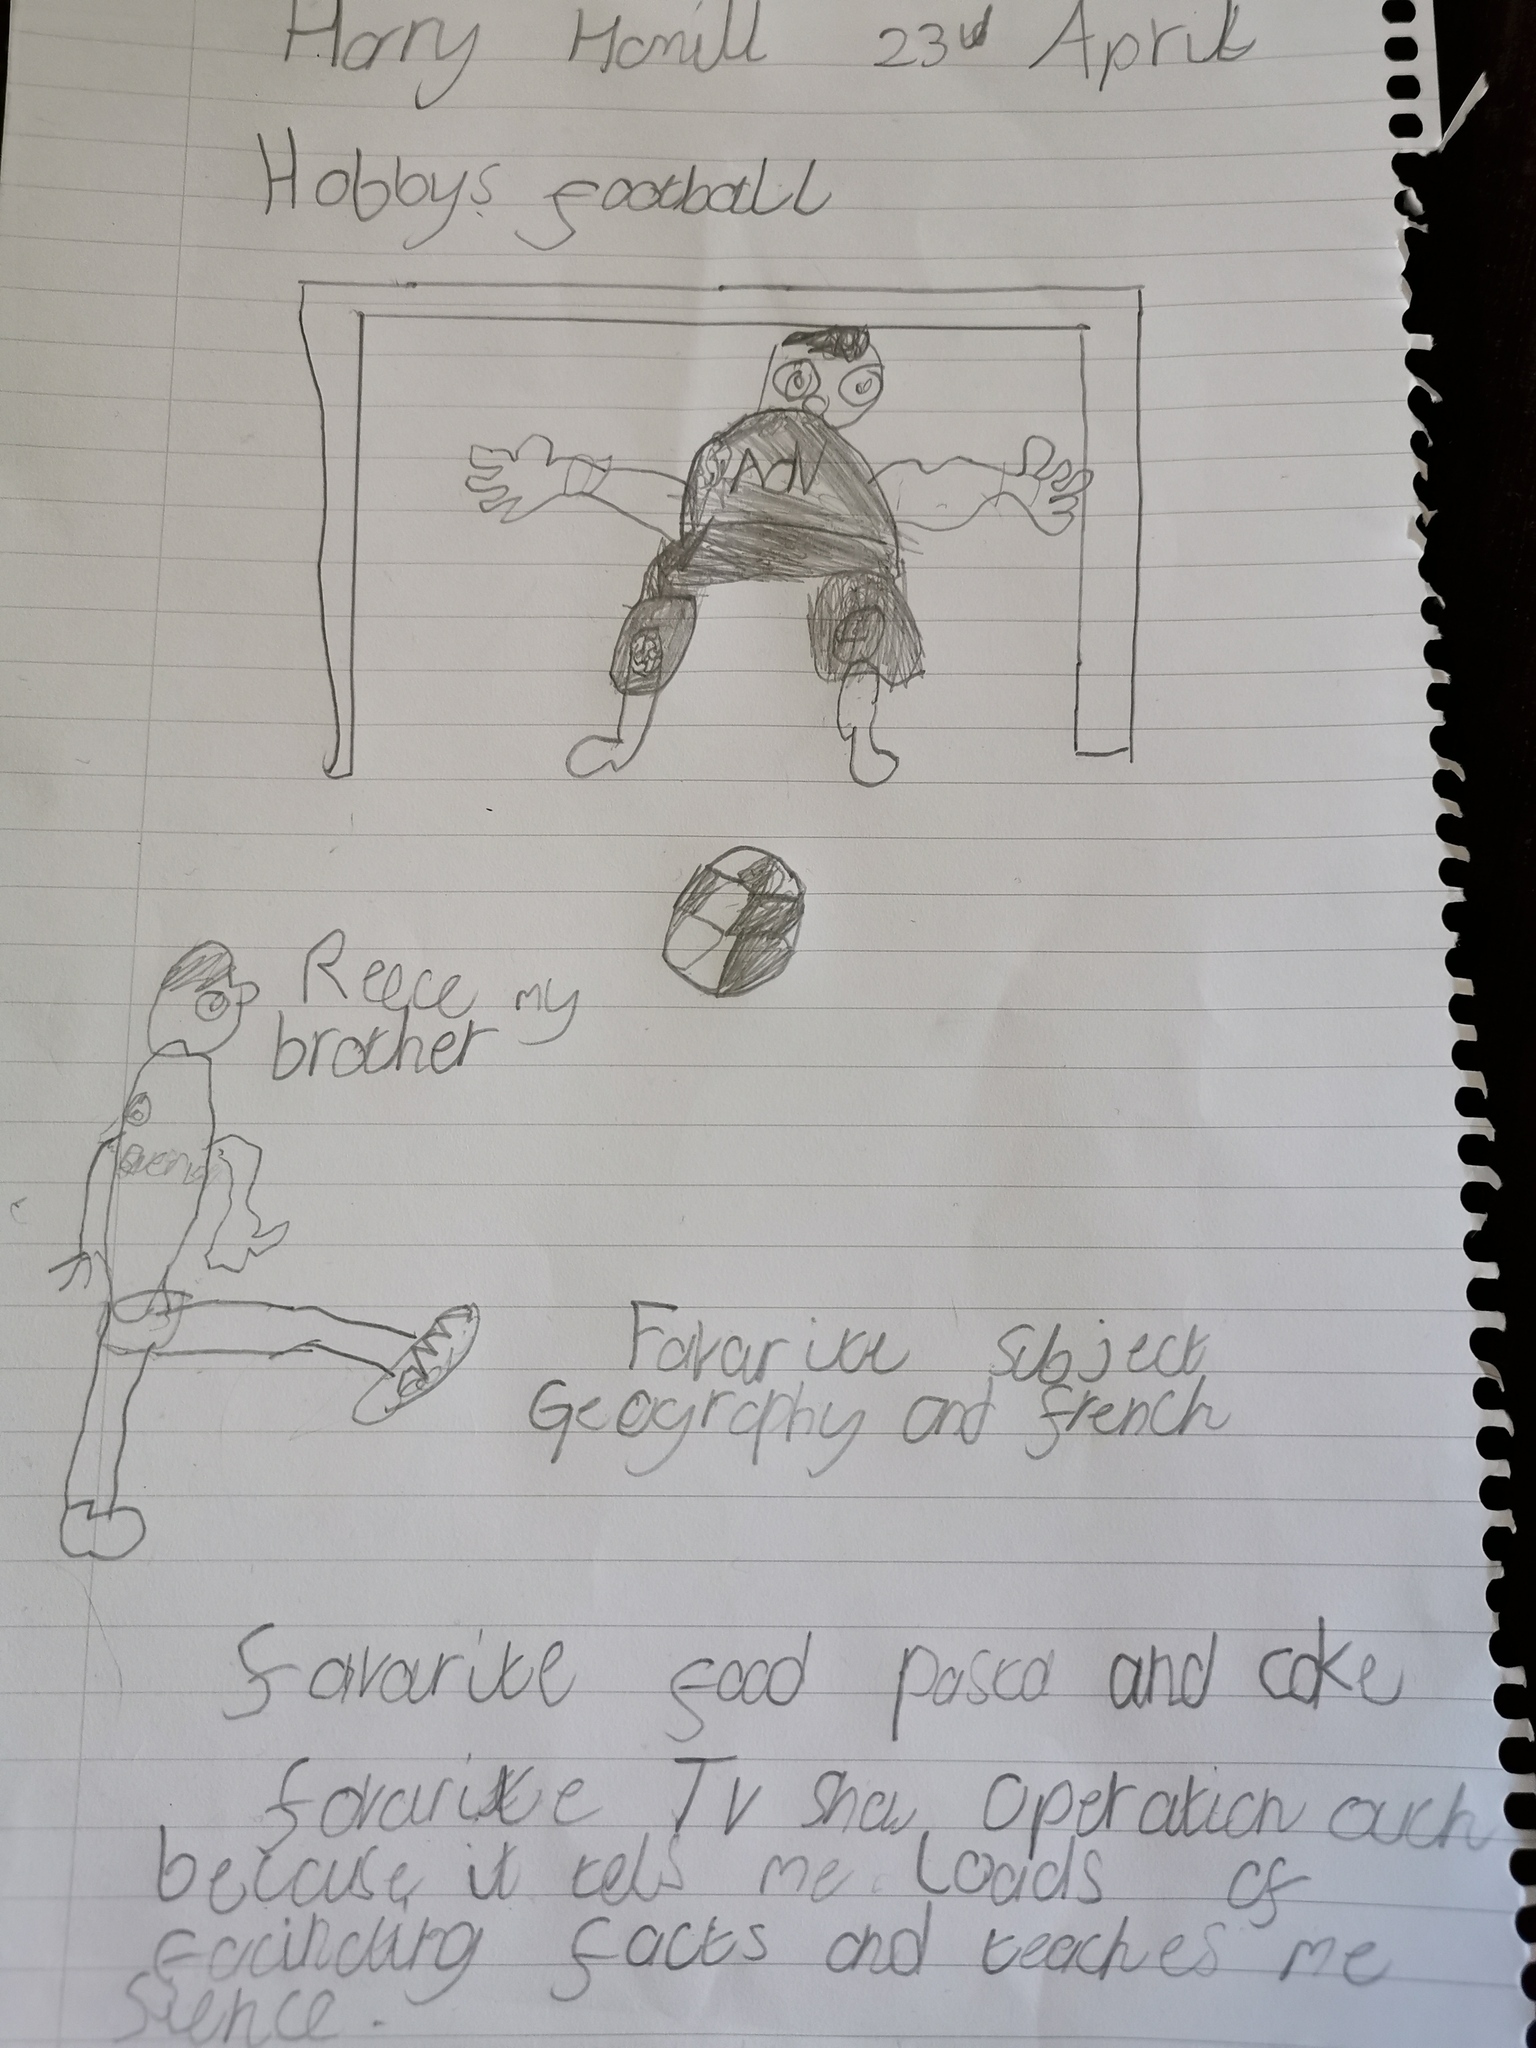 Harry Hamill 23rd April
Hobbys football
AON
Reece my
brother
Favarite subject
Geography and french
favarite food pasta and coke
favarite TV show Operation ouch
because it tels me loads of
facts and teaches me
sience.